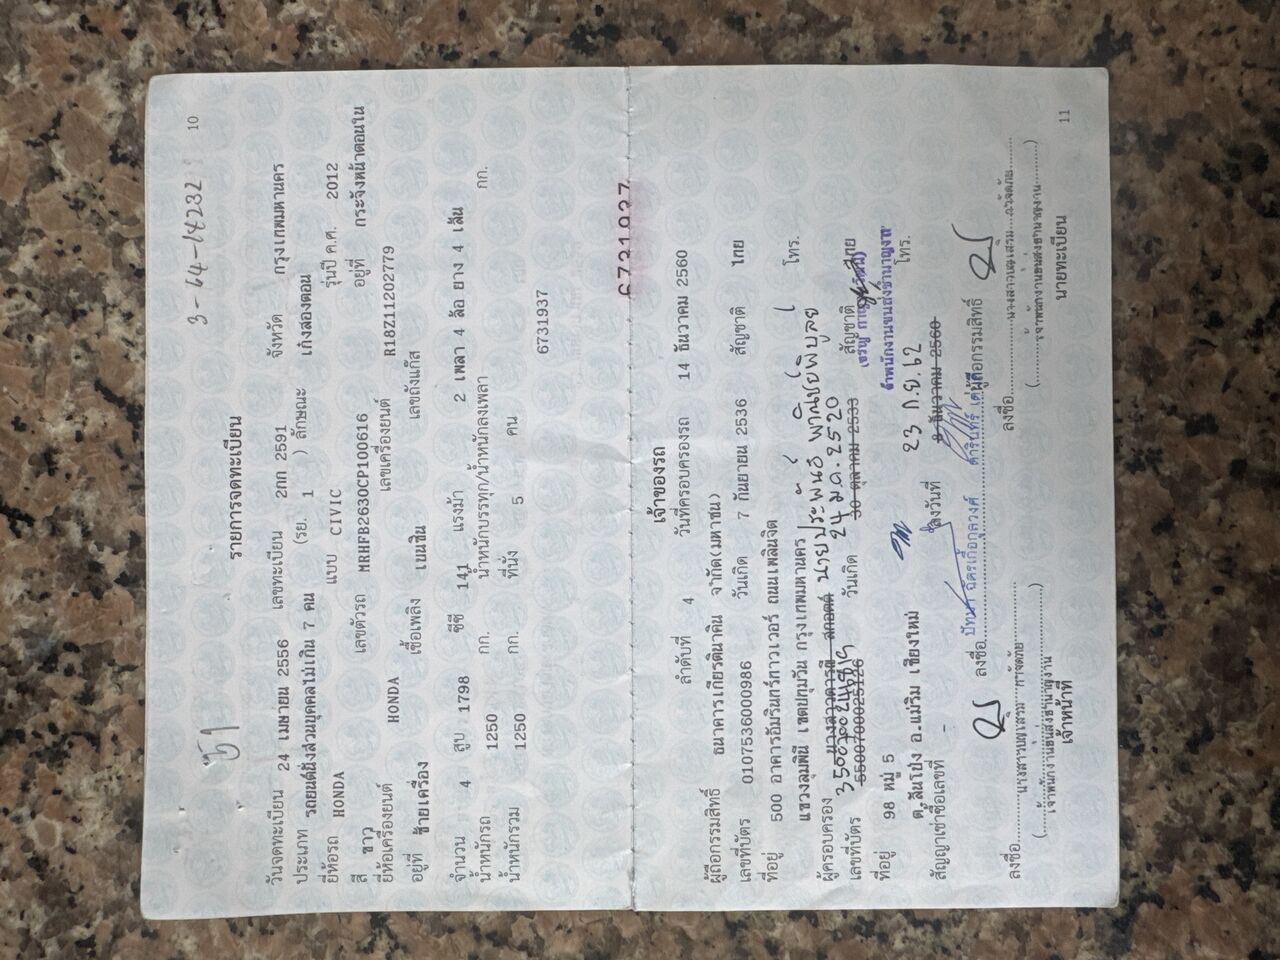 3-64-14232
10
รายการจดทะเบียน
วันจดทะเบียน 24 เมษายน 2556 เลขทะเบียน 2กก 2591 จังหวัด กรุงเทพมหานคร
ประเภท รถยนต์นั่งส่วนบุคคลไม่เกิน 7 คน (รย. 1 ) ลักษณะ เก๋งสองตอน
ยี่ห้อรถ HONDA แบบ CIVIC รุ่นปี ค.ศ. 2012
สี ขาว เลขตัวรถ MRHFB2630CP100616 อยู่ที่ กระจังหน้าตอนใน
ยี่ห้อเครื่องยนต์ HONDA เลขเครื่องยนต์ R18Z11202779
อยู่ที่ ซ้ายเครื่อง เชื้อเพลิง เบนซิน เลขถังแก๊ส
จำนวน 4 สูบ 1798 ซีซี 141 แรงม้า 2 เพลา 4 ล้อ ยาง 4 เส้น
น้ำหนักรถ 1250 กก. น้ำหนักบรรทุก/น้ำหนักลงเพลา กก.
น้ำหนักรวม 1250 กก. ที่นั่ง 5 คน
6731937
6731937
เจ้าของรถ
ลำดับที่ 4 วันที่ครอบครองรถ 14 ธันวาคม 2560
ผู้ถือกรรมสิทธิ์ ธนาคารเกียรตินาคิน จำกัด(มหาชน)
เลขที่บัตร 0107536000986 วันเกิด 7 กันยายน 2536 สัญชาติ ไทย
ที่อยู่ 500 อาคารอัมรินทร์ทาวเวอร์ ถนนเพลินจิต
แขวงลุมพินี เขตปทุมวัน กรุงเทพมหานคร โทร.
ผู้ครอบครอง นายประพันธ์ พาณิชย์พิบูลย์
เลขที่บัตร วันเกิด 24 ม.ค. 2520 สัญชาติ ไทย
ที่อยู่ 98 หมู่ 5
เจ้าพนักงานขนส่งชำนาญงาน
ต.สันโป่ง อ.แม่ริม เชียงใหม่ โทร.
สัญญาเช่าซื้อเลขที่ - ลงวันที่ 23 ก.ย. 62
8 ธันวาคม 2560
ลงชื่อ ผู้ถือกรรมสิทธิ์
ลงชื่อ
(เจ้าพนักงานขนส่งชำนาญงาน)
เจ้าหน้าที่
ลงชื่อ
(เจ้าพนักงานขนส่งชำนาญงาน)
นายทะเบียน
11